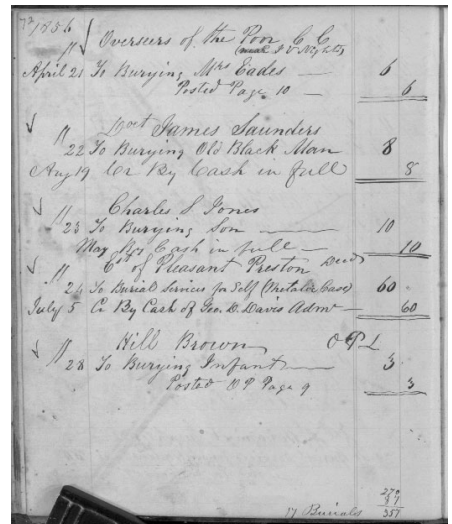 72 1856
" Overseers of the Poor C. C.
(near I V Nights)
April 21 To Burying Mrs Eades — 6
Posted Page 10 — 6
" Doct James Saunders
22 To Burying Old Black Man 8
Aug 19 Cr By Cash in full 8
" Charles S Jones
23 To Burying Son — 10
May By Cash in full — 10
" Est of Pleasant Preston Decd
24 To Burial Services for Self (Metalic Case) 60
July 5 Cr By Cash of Geo. D. Davis Admr — 60
" Hill Brown O P L
28 To Burying Infant — 3
Posted O P Page 9 3
270
87
17 Burials 357